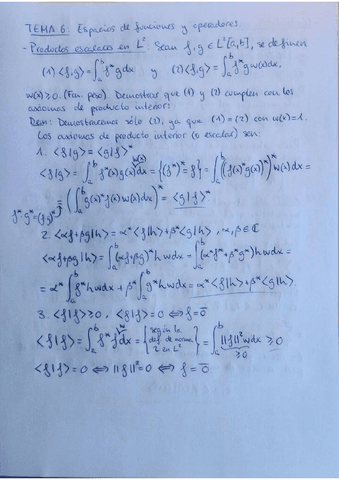 TEMA 6: Espacios de funciones y operadores
- Productos escalares en L²: Sean f, g ∈ L²[a,b], se definen
(1) <f,g> = ∫_a^b f* g dx y (2) <f,g> = ∫_a^b f* g w(x) dx,
w(x) ≥ 0. (Fun. peso). Demostrar que (1) y (2) cumplen con los
axiomas de producto interior:
Dem: Demostraremos sólo (2), ya que (1) = (2) con w(x) = 1.
Los axiomas de producto interior (o escalar) son:
1. <f|g> = <g|f>*
<f|g> = ∫_a^b f*(x) g(x) w(x) dx = {(f*)* = f} = ∫_a^b ((f(x) g(x)*)* w(x) dx =
= (∫_a^b g*(x) f(x) w(x) dx)* = <g|f>*
f* g* = (fg)*
2. <αf+βg|h> = α*<f|h> + β*<g|h>, α, β ∈ ℂ
<αf+βg|h> = ∫_a^b (αf+βg)* h w dx = ∫_a^b (α*f* + β*g*) h w dx =
= α* ∫_a^b f* h w dx + β* ∫_a^b g* h w dx = α*<f|h> + β*<g|h>.
3. <f|f> ≥ 0, <f|f> = 0 ⟺ f = 0̄
<f|f> = ∫_a^b f* f w dx = {según la def. de norma 2 en L²} = ∫_a^b ||f||² w dx ≥ 0
≥ 0
<f|f> = 0 ⟺ ||f||² = 0 ⟺ f = 0̄